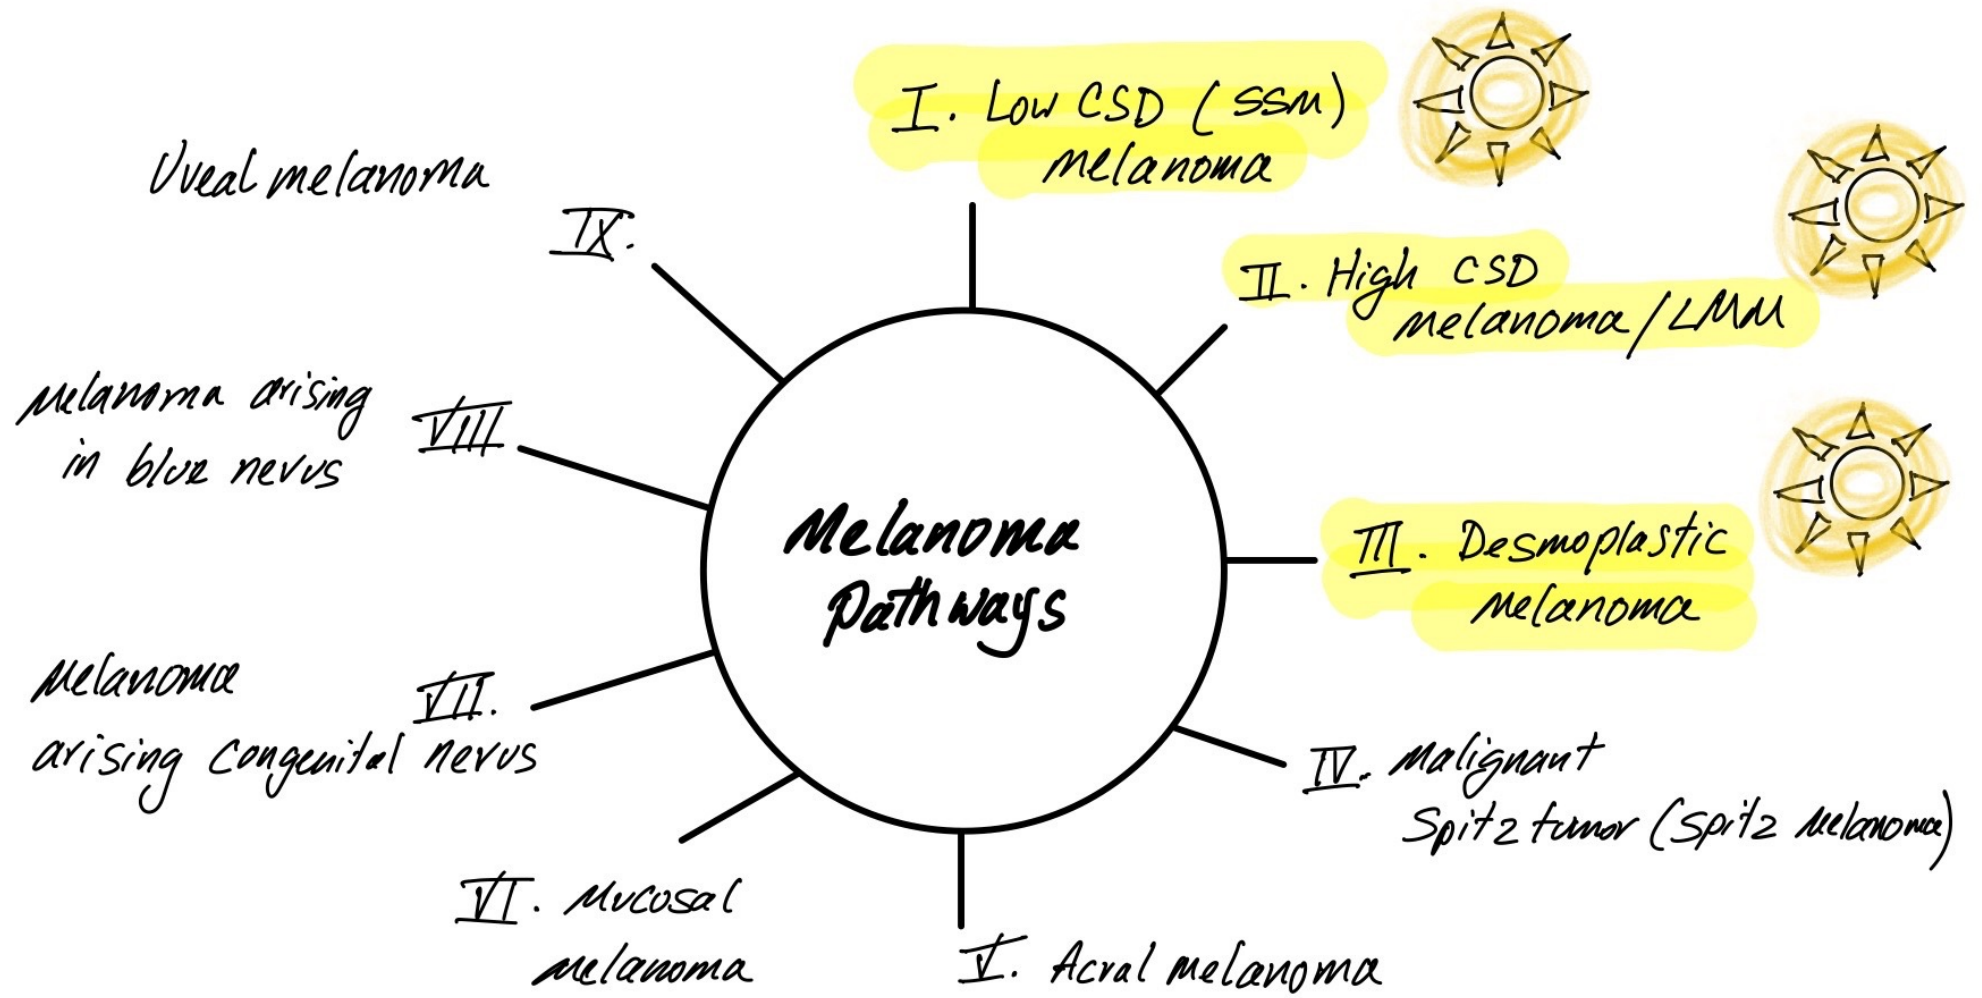 Melanoma
Pathways
I. Low CSD (SSM)
melanoma
II. High CSD
melanoma/LMM
III. Desmoplastic
melanoma
IV. Malignant
Spitz tumor (Spitz Melanoma)
V. Acral melanoma
VI. Mucosal
melanoma
VII.
Melanoma
arising congenital nevus
VIII
Melanoma arising
in blue nevus
IX.
Uveal melanoma